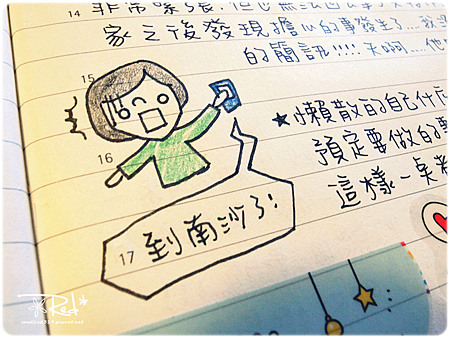 14 非常緊張,但也無法
家之後發現擔心的事發生了....我
的簡訊!!!!天啊....他
15
★懶散的自己什
16
預定要做的事
這樣一桌
17 到南沙了!
Red